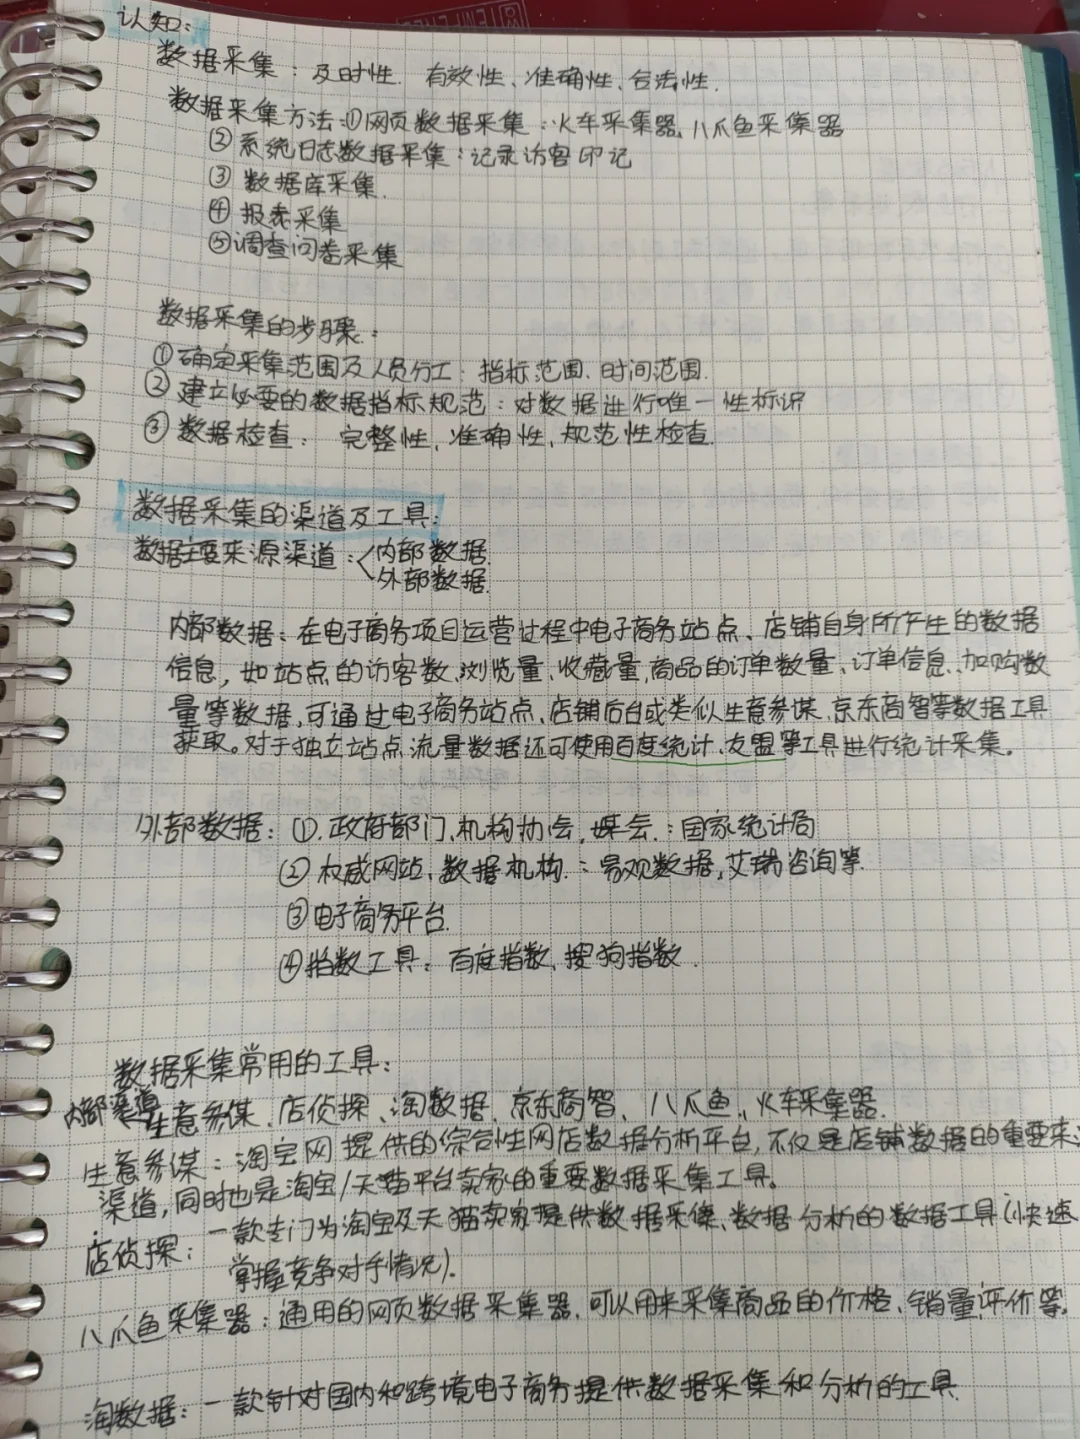 认知:
数据采集:及时性. 有效性、准确性、合法性.
数据采集方法:①网页数据采集:火车采集器、八爪鱼采集器
②系统日志数据采集:记录访客印记
③ 数据库采集.
④ 报表采集
⑤调查问卷采集
数据采集的步骤:
①确定采集范围及人员分工:指标范围、时间范围.
② 建立必要的数据指标规范:对数据进行唯一性标识
③ 数据检查: 完整性、准确性、规范性检查.
数据采集的渠道及工具:
数据主要来源渠道:内部数据.
外部数据.
内部数据:在电子商务项目运营过程中电子商务站点、店铺自身所产生的数据
信息,如站点的访客数、浏览量、收藏量,商品的订单数量、订单信息、加购数
量等数据,可通过电子商务站点、店铺后台或类似生意参谋、京东商智等数据工具
获取。对于独立站点流量数据还可使用百度统计、友盟等工具进行统计采集。
外部数据:①.政府部门、机构协会,媒会.:国家统计局
②权威网站、数据机构.:易观数据,艾瑞咨询等.
③电子商务平台.
④指数工具:百度指数、搜狗指数.
数据采集常用的工具:
内部渠道
生意参谋、店侦探、淘数据、京东商智、八爪鱼、火车采集器.
生意参谋:淘宝网提供的综合性网店数据分析平台,不仅是店铺数据的重要来
渠道,同时也是淘宝/天猫平台卖家的重要数据采集工具。
店侦探:一款专门为淘宝及天猫卖家提供数据采集、数据分析的数据工具(快速
掌握竞争对手情况).
八爪鱼采集器:通用的网页数据采集器,可以用来采集商品的价格、销量,评价等.
淘数据:一款针对国内和跨境电子商务提供数据采集和分析的工具.